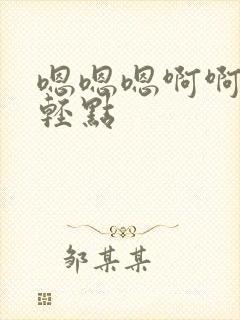 嗯嗯嗯啊啊
輕點
邹某某